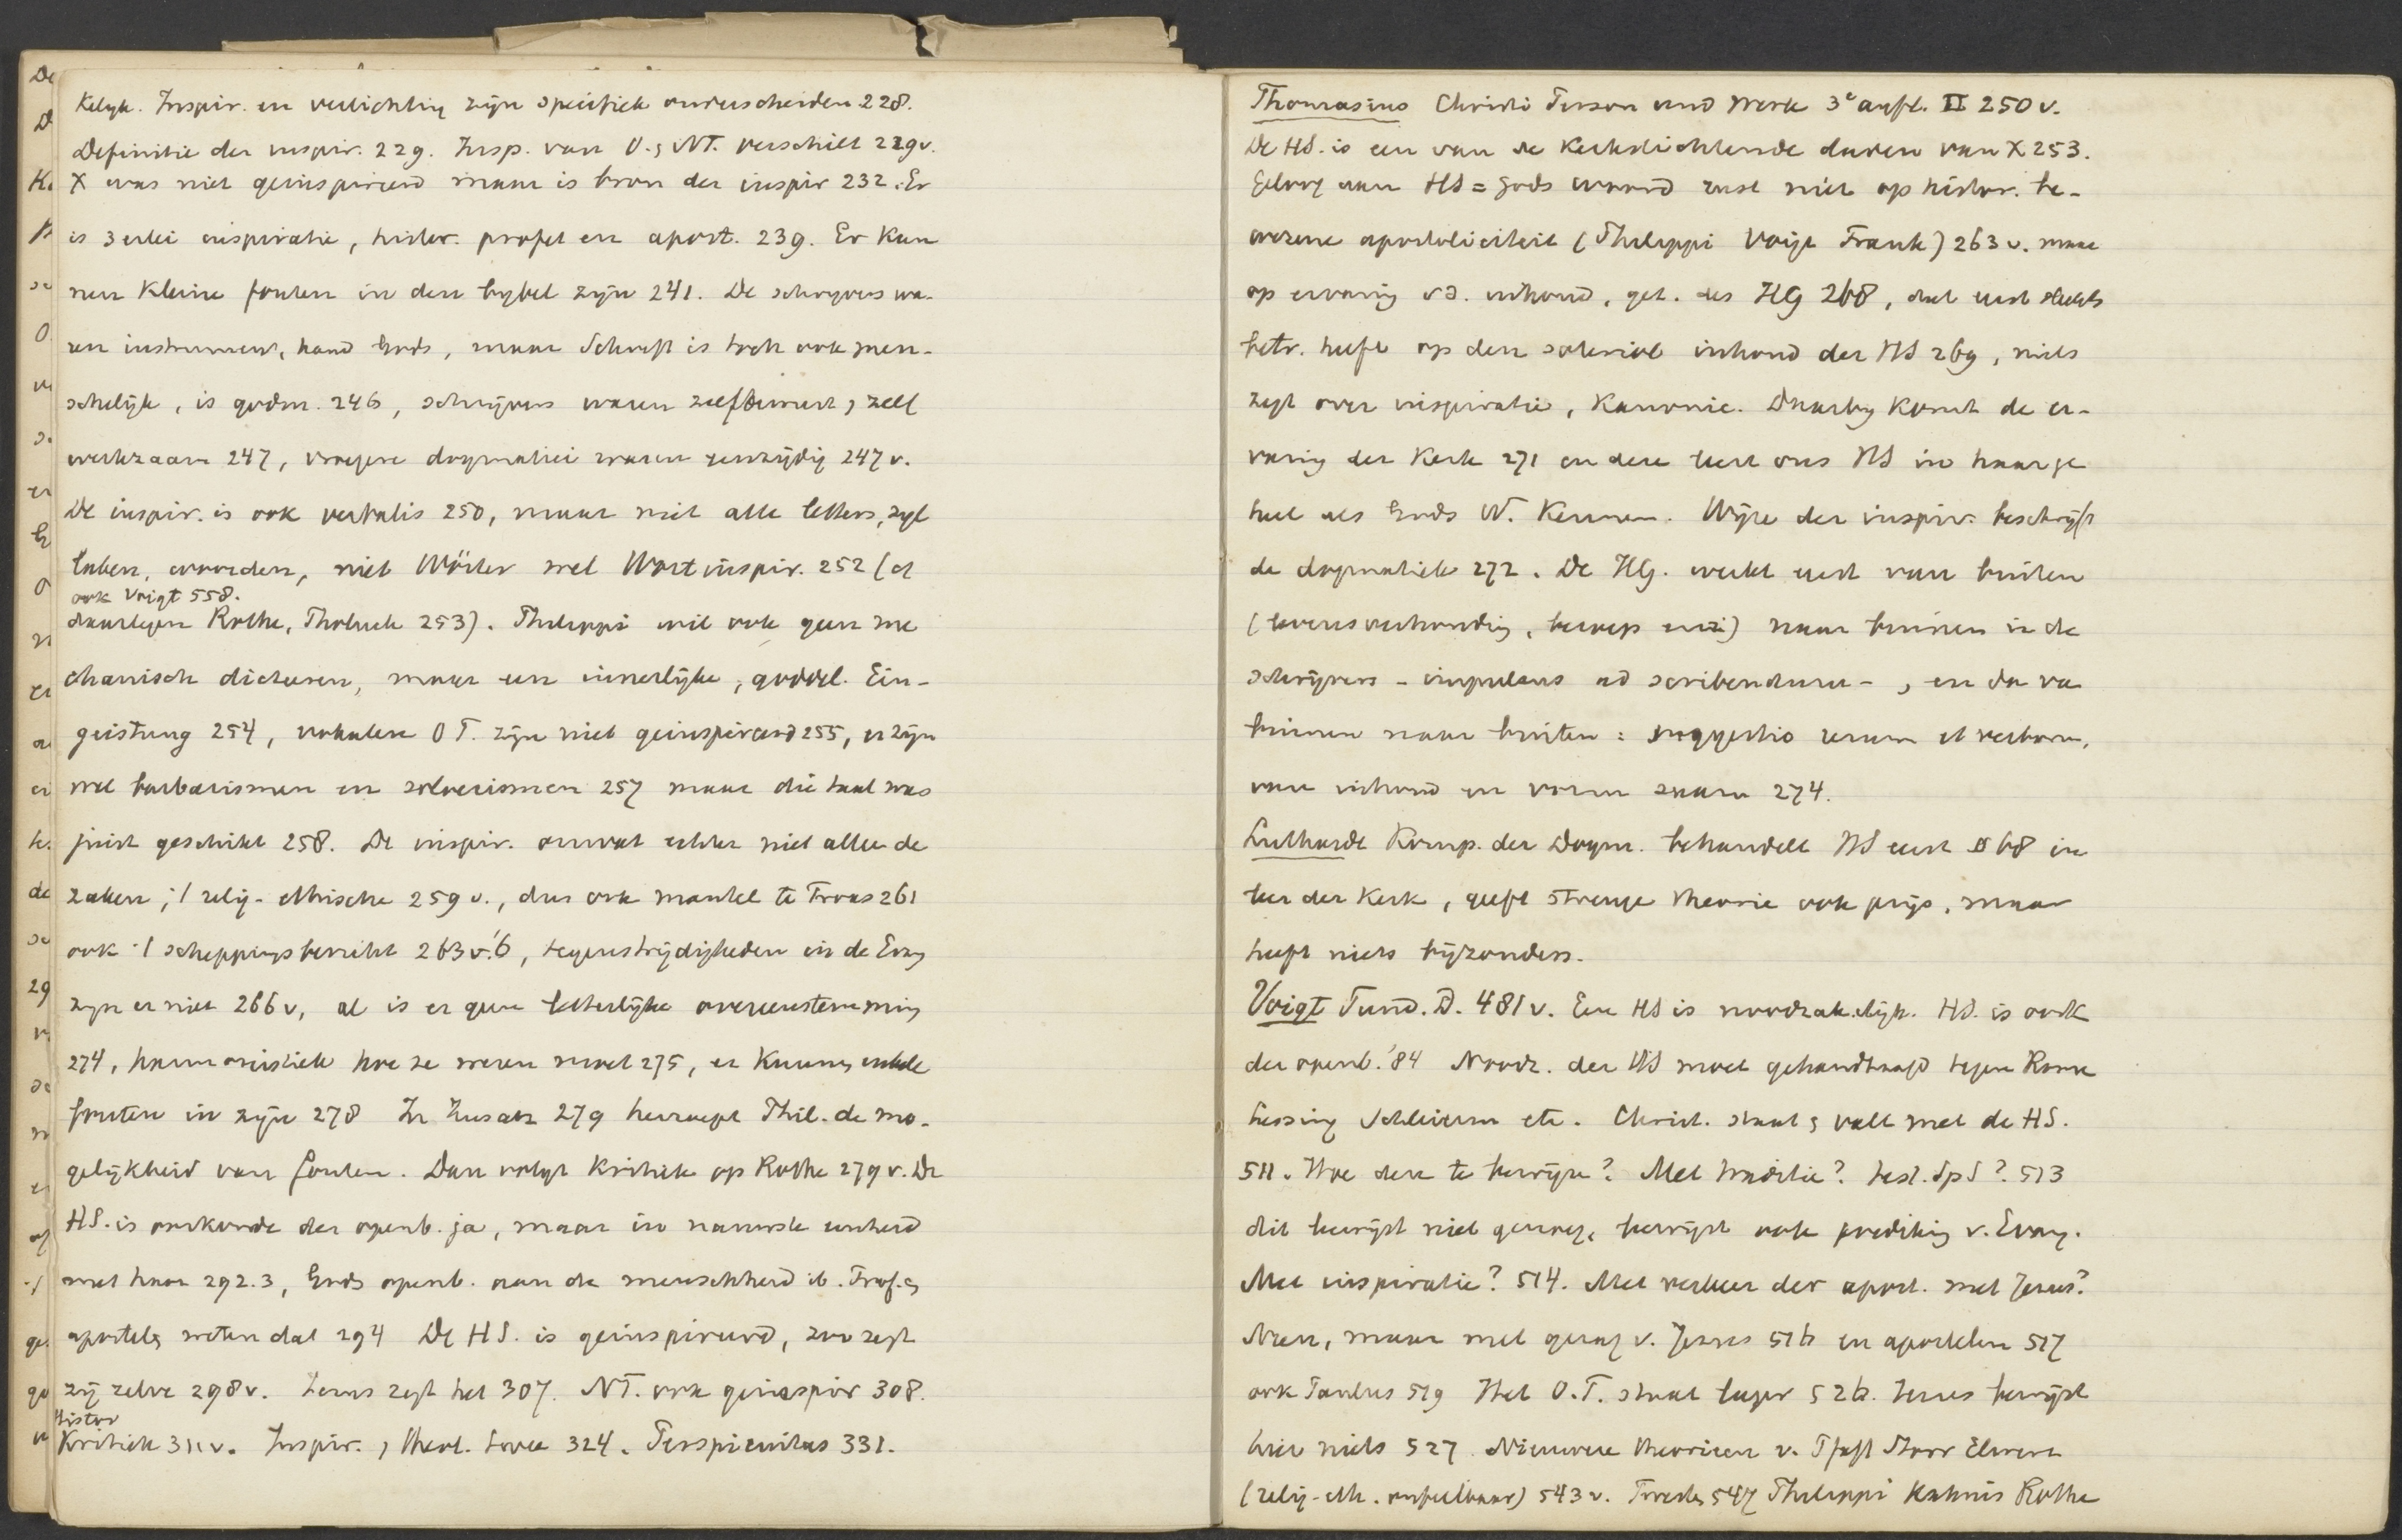 kelijk. Inspir. en verlichting zijn specifiek onderscheiden 228.
Definitie der inspir. 229. Insp. van O. & NT. verschilt 229v.
X was niet geinspireerd maar is bron der inspir 232. Er
is 3 erlei inspiratie, histor. profet en apost. 239. Er kun
nen kleine fouten in den bybel zyn 241. De schryvers wa-
ren instrument, hand Gods, maar Schrift is toch ook men-
schelijk, is godm. 246, schrijvers waren zelfbewust, zelf
werkzaam 247, vroegere dogmatici waren eenzijdig 247v.
De inspir. is ook verbalis 250, maar niet alle letters, syl
laben, woorden, niet Wörter wel Wortinspir. 252 (cf
ook Voigt 558.
daartegen Rothe, Tholuck 253). Philippi wil ook geen me
chanisch dicteeren, maar een innerlijke, goddel. Ein-
geistung 254, vokalen OT. zijn niet geinspireerd 255, er zijn
wel barbarismen en soloecismen 257 maar die taal was
juist geschikt 258. De inspir. omvat echter niet alleen de
zaken, relig-ethische 259v., dus ook mantel te Troas 261
ook scheppingsbericht 263v. 6, tegenstrijdigheden in de Evng
zyn er niet 266v, al is er geen letterlijke overeenstemming
274, harmonistiek hoe ze wezen moet 275, er kunnen enkele
fouten in zijn 278 In Zusatz 279 herroept Phil. de mo-
gelijkheid van fouten. Dan volgt kritiek op Rothe 279v. De
HS. is oorkonde der openb. ja, maar in nauwste eenheid
met haar 292.3, Gods openb. aan de menschheid ib. Prof. &
apostels weten dat 294 De HS. is geinspireerd, zoo zegt
zij zelve 298v. Jezus zegt het 307. NT. ook geinspir 308.
Histor
Kritiek 311v. Inspir. 324. Perspicuitas 331.
Thomasius Christi Person und Werk 3e aufl. II 250v.
De HS. is een van de kerkstichtende daden van X 253.
Geloof aan HS = Gods woord rust niet op histor. be-
wezene apostoliciteit (Philippi Voigt Frank) 263v. maar
op ervaring v.d. inhoud, get. des HG 268, dat eerst slechts
betr. heeft op den inhoud der HS 269, niets
zegt over inspiratie, kanonic. Daarby komt de er-
varing der Kerk 271 en deze leert ons HS in haar ge
heel als Gods W. kennen. Wijze der inspir. beschrijft
de dogmatiek 272. De HG. werkt eerst van buiten
(levensverhouding, beroep enz) naar binnen in de
schrijvers - impulsus ad scribendum -, en dan van
binnen naar buiten: suggestio rerum et verborum,
van inhoud en vorm saam 274.
Luthardt Komp. der Dogm. behandelt HS eerst § 68 in
leer der kerk, geeft strenge theorie ook prijs, maar
heeft niets bijzonders.
Voigt Fund. D. 481v. Een HS is noodzakelijk. HS. is oork
der openb. '84 Noodz. der HS moet gehandhaafd tegen Rome
Lessing Schleierm etc. Christ. staat & valt met de HS.
511. Hoe deze te bewijzen? Met traditie? test. Sp S? 513
dit bewijst niet genoeg, bewijst ook prediking v. Evang.
Met inspiratie? 514. Met verkeer der apost. met Jezus?
Neen, maar met gezag v. Jezus 516 en apostelen 517
ook Paulus 519 Het O.T. staat lager 526. Jezus bewijst
hier niets 527. Nieuwere theorieen v. Pfaff Storr Elwert
(relig-eth. onfeilbaar) 543v. Twesten 547 Philippi Kahnis Rothe